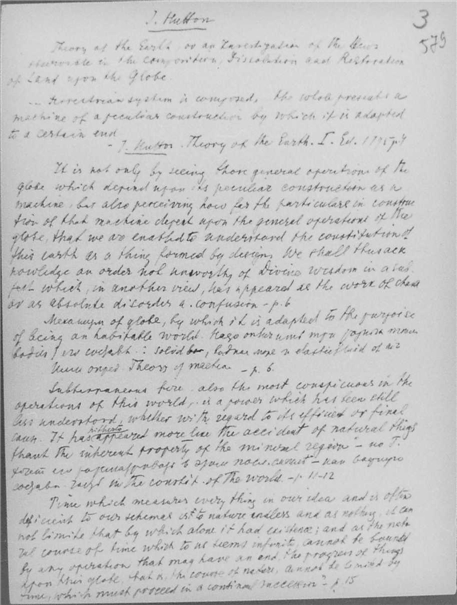 J. Hutton
3
579
Theory of the Earth or an Investigation of the Laws
observable in the Composition, Dissolution and Restoration
of Land upon the Globe.
... terrestrian system is composed, the whole presents a
machine of a peculiar construction by which it is adapted
to a certain end
- J. Hutton. Theory of the Earth. I. Ed. 1795 p
It is not only by seeing those general operation of the
globe which depend upon its peculiar construction as a
machine, but also perceiving how far the particulars in construc
tion of that machine depent upon the general operations of the
globe, that we are enabled to understood the constitution of
this earth as a thing formed by desing. We shall thus ack
nowledge an order not unworthy of Divine wisdom in a sub
ject which, in another view, has appeared as the work of chance
or as absolute disorder a. confusion - p. 6
of globe, by which it is adapted to the purpose
of being an habitable world.
bodies solid elastic fluid of air
Theory of - p. 6.
Subterraneous fire also the most conspicuous in the
operations of this world, is a power which has been still
less understood, whether with regard to its efficient or final
caus. It has hitherto appeared more like the accident of natural things
thant the inherent property of the mineral region" -
in the constit. of the world. - p 11-12
Time which measures every thing in our idea and is often
deficient to our schemes is to nature endless and as nothing, it can
not limite that by which alone it had existence; and as the natu
ral course of time which to us seems infinite, cannot be bounded
by any operations that may have an end the progress of things
upon this globe, that is, the course of nature, cannot be limited by
time, which must proceed in a continual succession" - p. 15